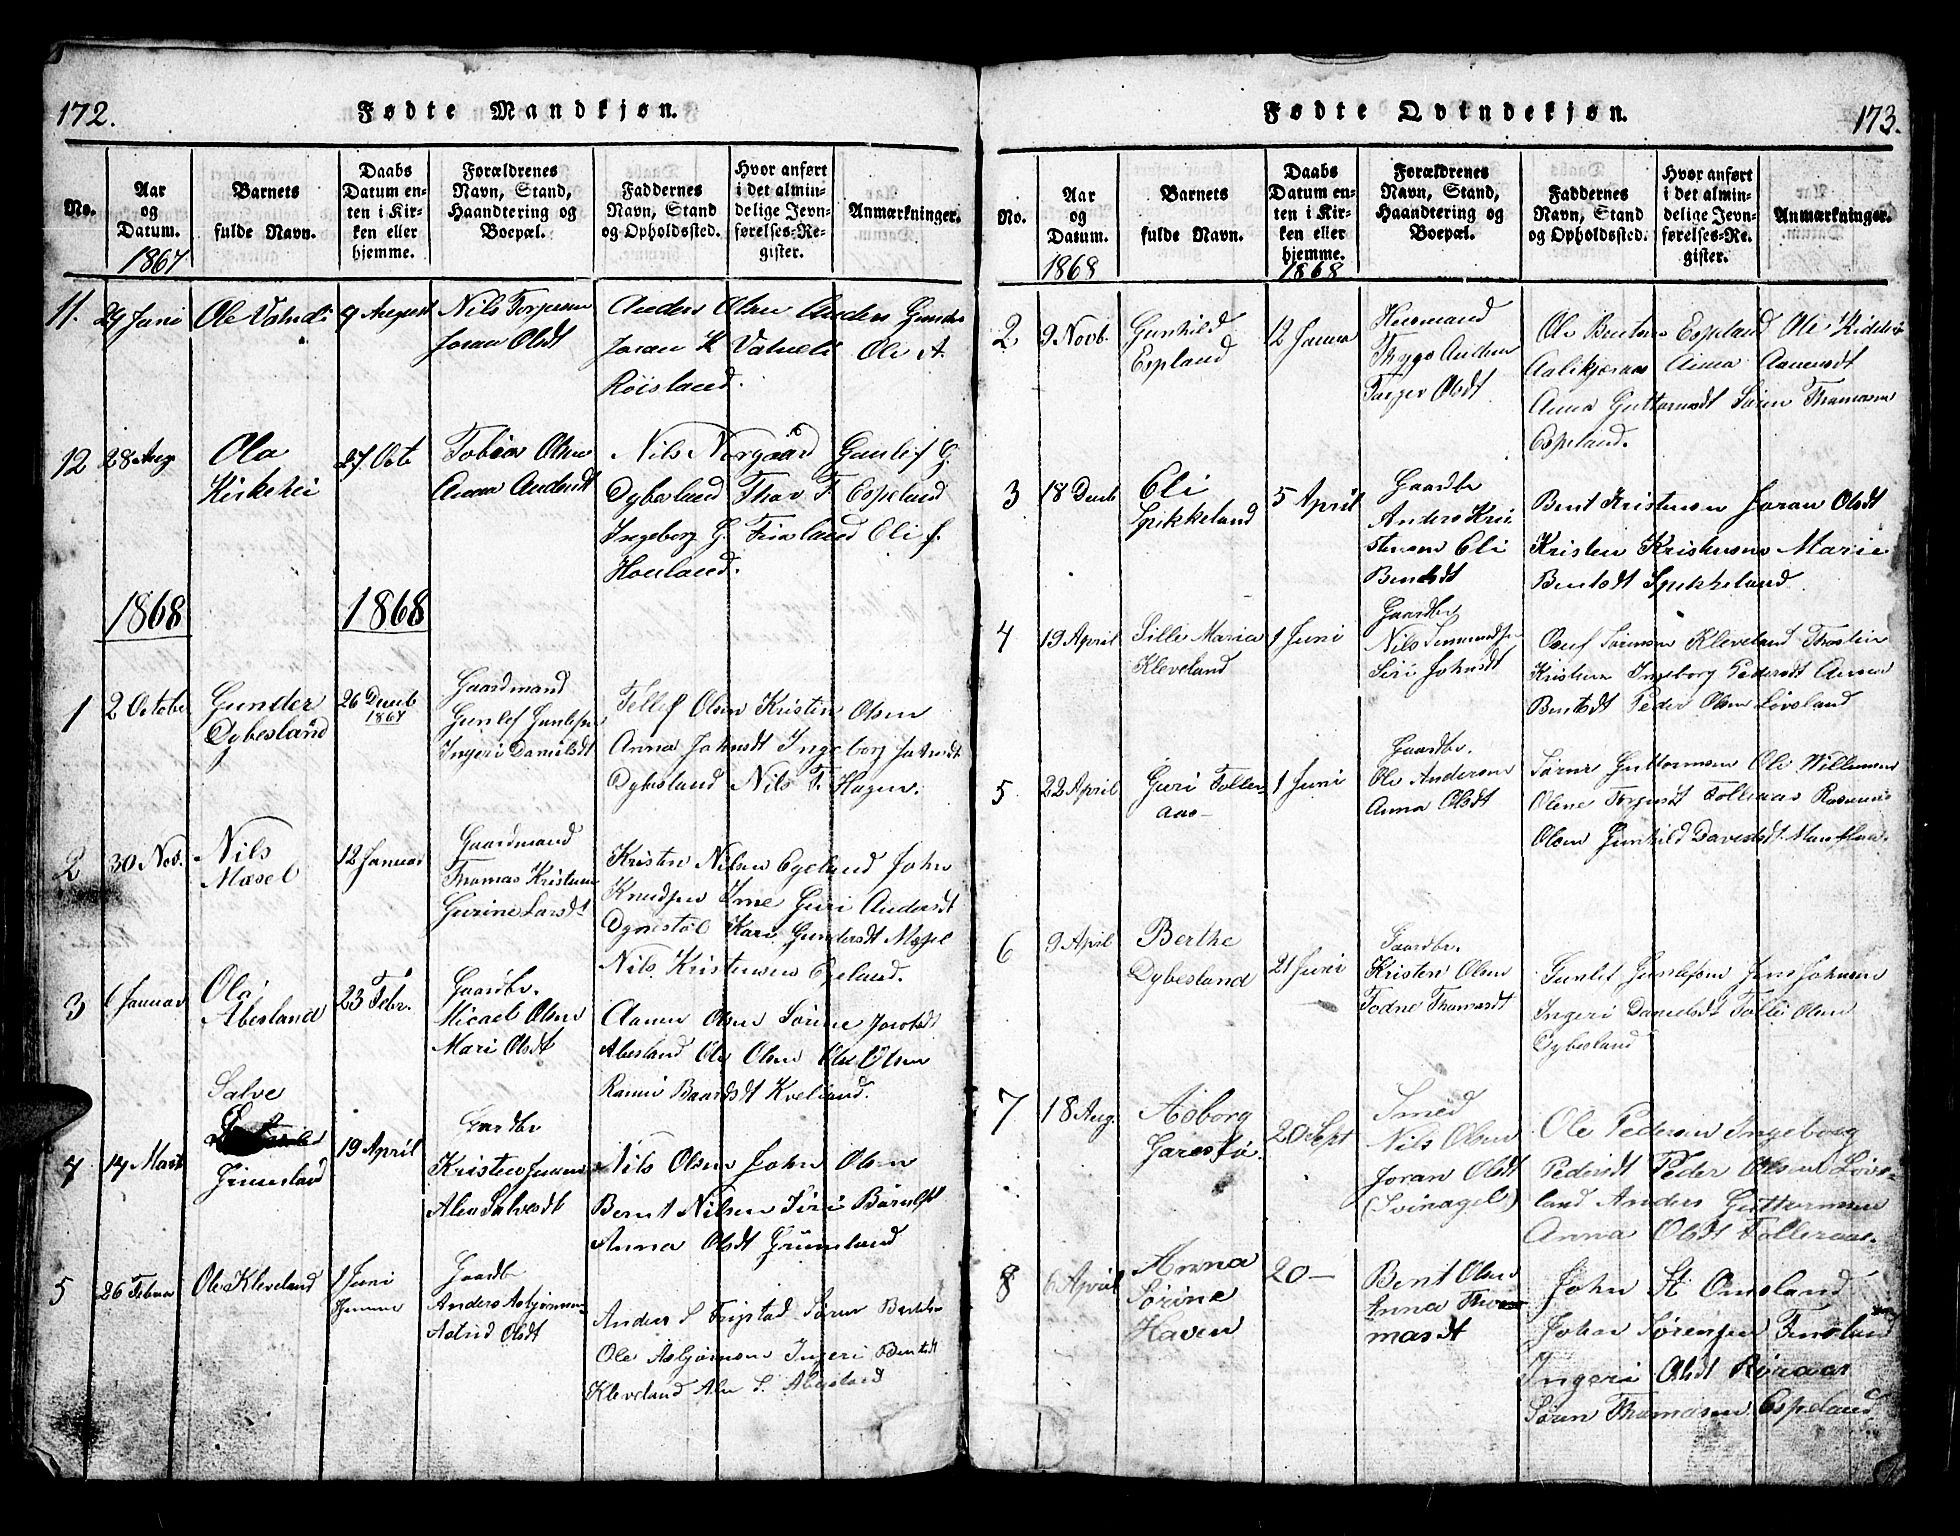 172.
Fødte Mandkjøn.
No.
Aar
og
Datum.
1867
Barnets
fulde Navn.
Daabs
Datum en-
ten i Kir-
ken eller
hjemme.
Forældrenes
Navn, Stand,
Haandtering og
Boepæl.
Faddernes
Navn, Stand
og Opholdssted.
Hvor anført
i det almin-
delige Jevn-
førelses-Re-
gister.
Anmærkninger.
11. 27 Juni Ole 9 August Nils Torjesen
Joran Olsdt
Anders Olsen Anders
Joran K Ole A.
Röisland.
12 28 Aug Ola
Kirkehei
27 Octo Tobias Olsen
Anna Andersdt
Nils Norgaard Gunlef G.
Dybesland Thor F. Espeland
Ingeborg G. Eli
Houland.
1868
1868
1 2 October Gunder
Dybesland
26 Decmb
1867
Gaardmand
Gunlef
Ingeri Danielsdt
Tellef Olsen Kristen Olsen
Anna Johnsdt Ingeborg Johnsdt
Dybesland Nils F. Hagen.
2 30 Nov. Nils
Mæsel
12 Januar Gaardmand
Thomas Kristensen
Gurine Larsdt
Kristen Nilsen Egeland John
Knudsen Guri Andersdt
Dynestöl Kari Gundersdt Mæsel
Nils Kristensen Egeland.
3 6 Januar Ola
Abesland
23 Febr. Gaardbr.
Micael Olsen
Mari Olsdt
Aanen Olsen Sørine Jacobsdt
Abesland Ole Olsen Olsen
Baardsdt Kveliand.
4 14 Mart Salve
Grimesland
19 April Gaardbr
Kristen
Salvesdt
Nils Olsen John Olsen
Bernt Nilsen Siri
Anna Olsdt Grimsland
5 26 Februar Ole Kleveland 1 Juni
hjemme
Gaardb
Anders Asbjørnsen
Astrid Olsdt
Anders S Søren
Ole Asbjørnsen Ingeri Bentsdt
Kleveland S. Abesland
Fødte Qvindekjøn.
173.
No.
Aar
og
Datum.
1868
Barnets
fulde Navn.
Daabs
Datum en-
ten i Kir-
ken eller
hjemme.
1868
Forældrenes
Navn, Stand,
Haandtering og
Boepæl.
Faddernes
Navn, Stand
og Opholdssted.
Hvor anført
i det almin-
delige Jevn-
førelses-Re-
gister.
Anmærkninger.
2 9 Novb. Gunhild
Espland
12 Janua Huusmand
Thygo Andersen
Olsdt
Ole Bentsen Espland Ole
Anna Aanensdt
Anna Guttormsdt Sören Thomasen
Espeland.
3 18 Decmb Eli
Spikkeland
5 April Gaardbr
Anders Kri
stensen Eli
Bentsdt
Bent Kristensen Joran Olsdt
Kristen Kristensen Marie
Bentsdt Spikkeland
4 19 April Sille Maria
Kleveland
1 Juni Gaardbr
Nils
Siri Johnsdt
Oluf Sørensen Kleveland Thostein
Kristensen Ingeborg Pedersdt
Bentsdt Peder Olsen Lövsland
5 22 April Guri Foller-
aas
1 Juni Gaardbr.
Ole Andersen
Anna Olsdt
Guttormsen Ole Willumsen
Olene Torjusdt Folleraas Rasmus
Olsen Gunhild Davidsdt
6 9 April Berthe
Dybesland
21 Juni Gaardbr.
Kristen Olsen
Todne Thomasdt
Gunlef Gunlefsen Jens Johnsen
Ingeri Danielsdt Tollef Olsen
Dybesland
7 18 Aug. Asborg
20 Sept Smed
Nils Olsen
Joran Olsdt
(Svinagel)
Ole Pedersen Ingeborg
Pedersdt Peder Olsen Lövs-
land Anders Guttormsen
Anna Olsdt Folleraas.
8 6 April Anna
Sörine
Haven
20 — Bent Olsen
Anna Tho
masdt
John St. Omsland
John Sørensen Finsland
Ingeri Olsdt Röraas
Sören Thomasen Espeland